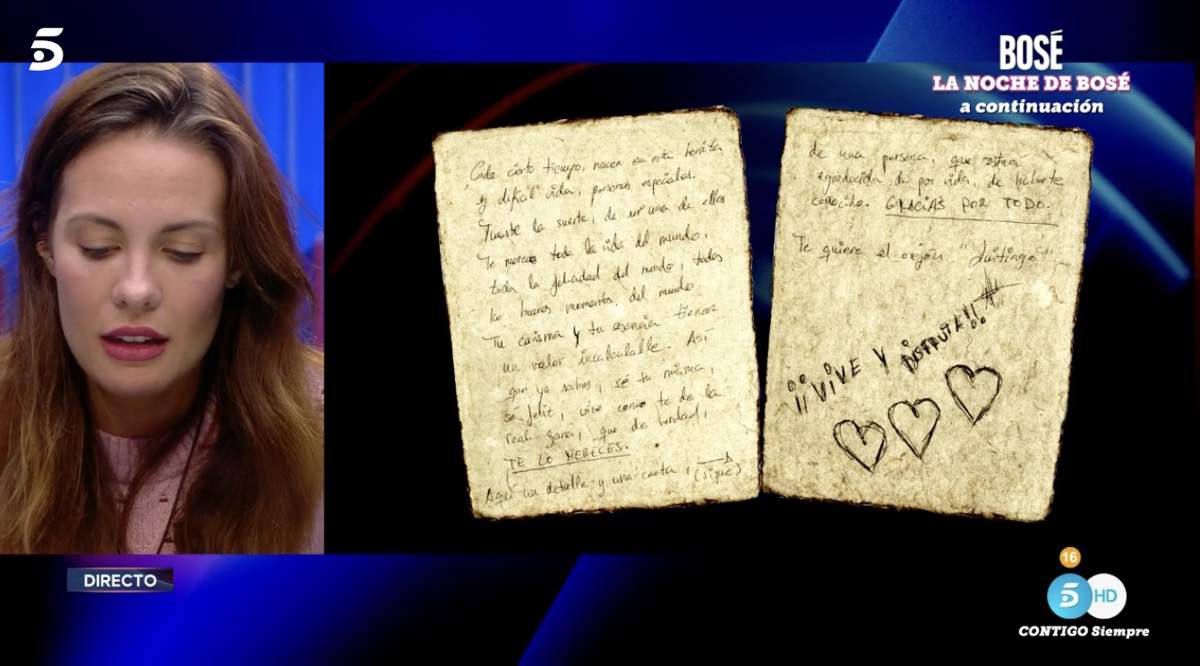 5
BOSÉ
LA NOCHE DE BOSÉ
a continuación
"Cada cierto tiempo, nacen en esta bonita
y dificil vida, personas especiales.
Tuviste la suerte, de ser una de ellas
Te mereces toda la vida del mundo,
toda la felicidad del mundo, todos
los buenos momentos del mundo
Tu carisma y tu esencia tienen
un valor incalculable. Así
que ya sabes, sé tu misma,
sé feliz, vive como te de la
real gana, que de verdad,
TE LO MERECES.
Aquí un detalle y una carta, (sigue)
de una persona, que estará
agradecida de por vida, de haberte
conocido. GRACIAS POR TODO.
Te quiere el orejón "Luitingo"
¡¡VIVE Y DISFRUTA!!
DIRECTO
16
5 HD
CONTIGO Siempre